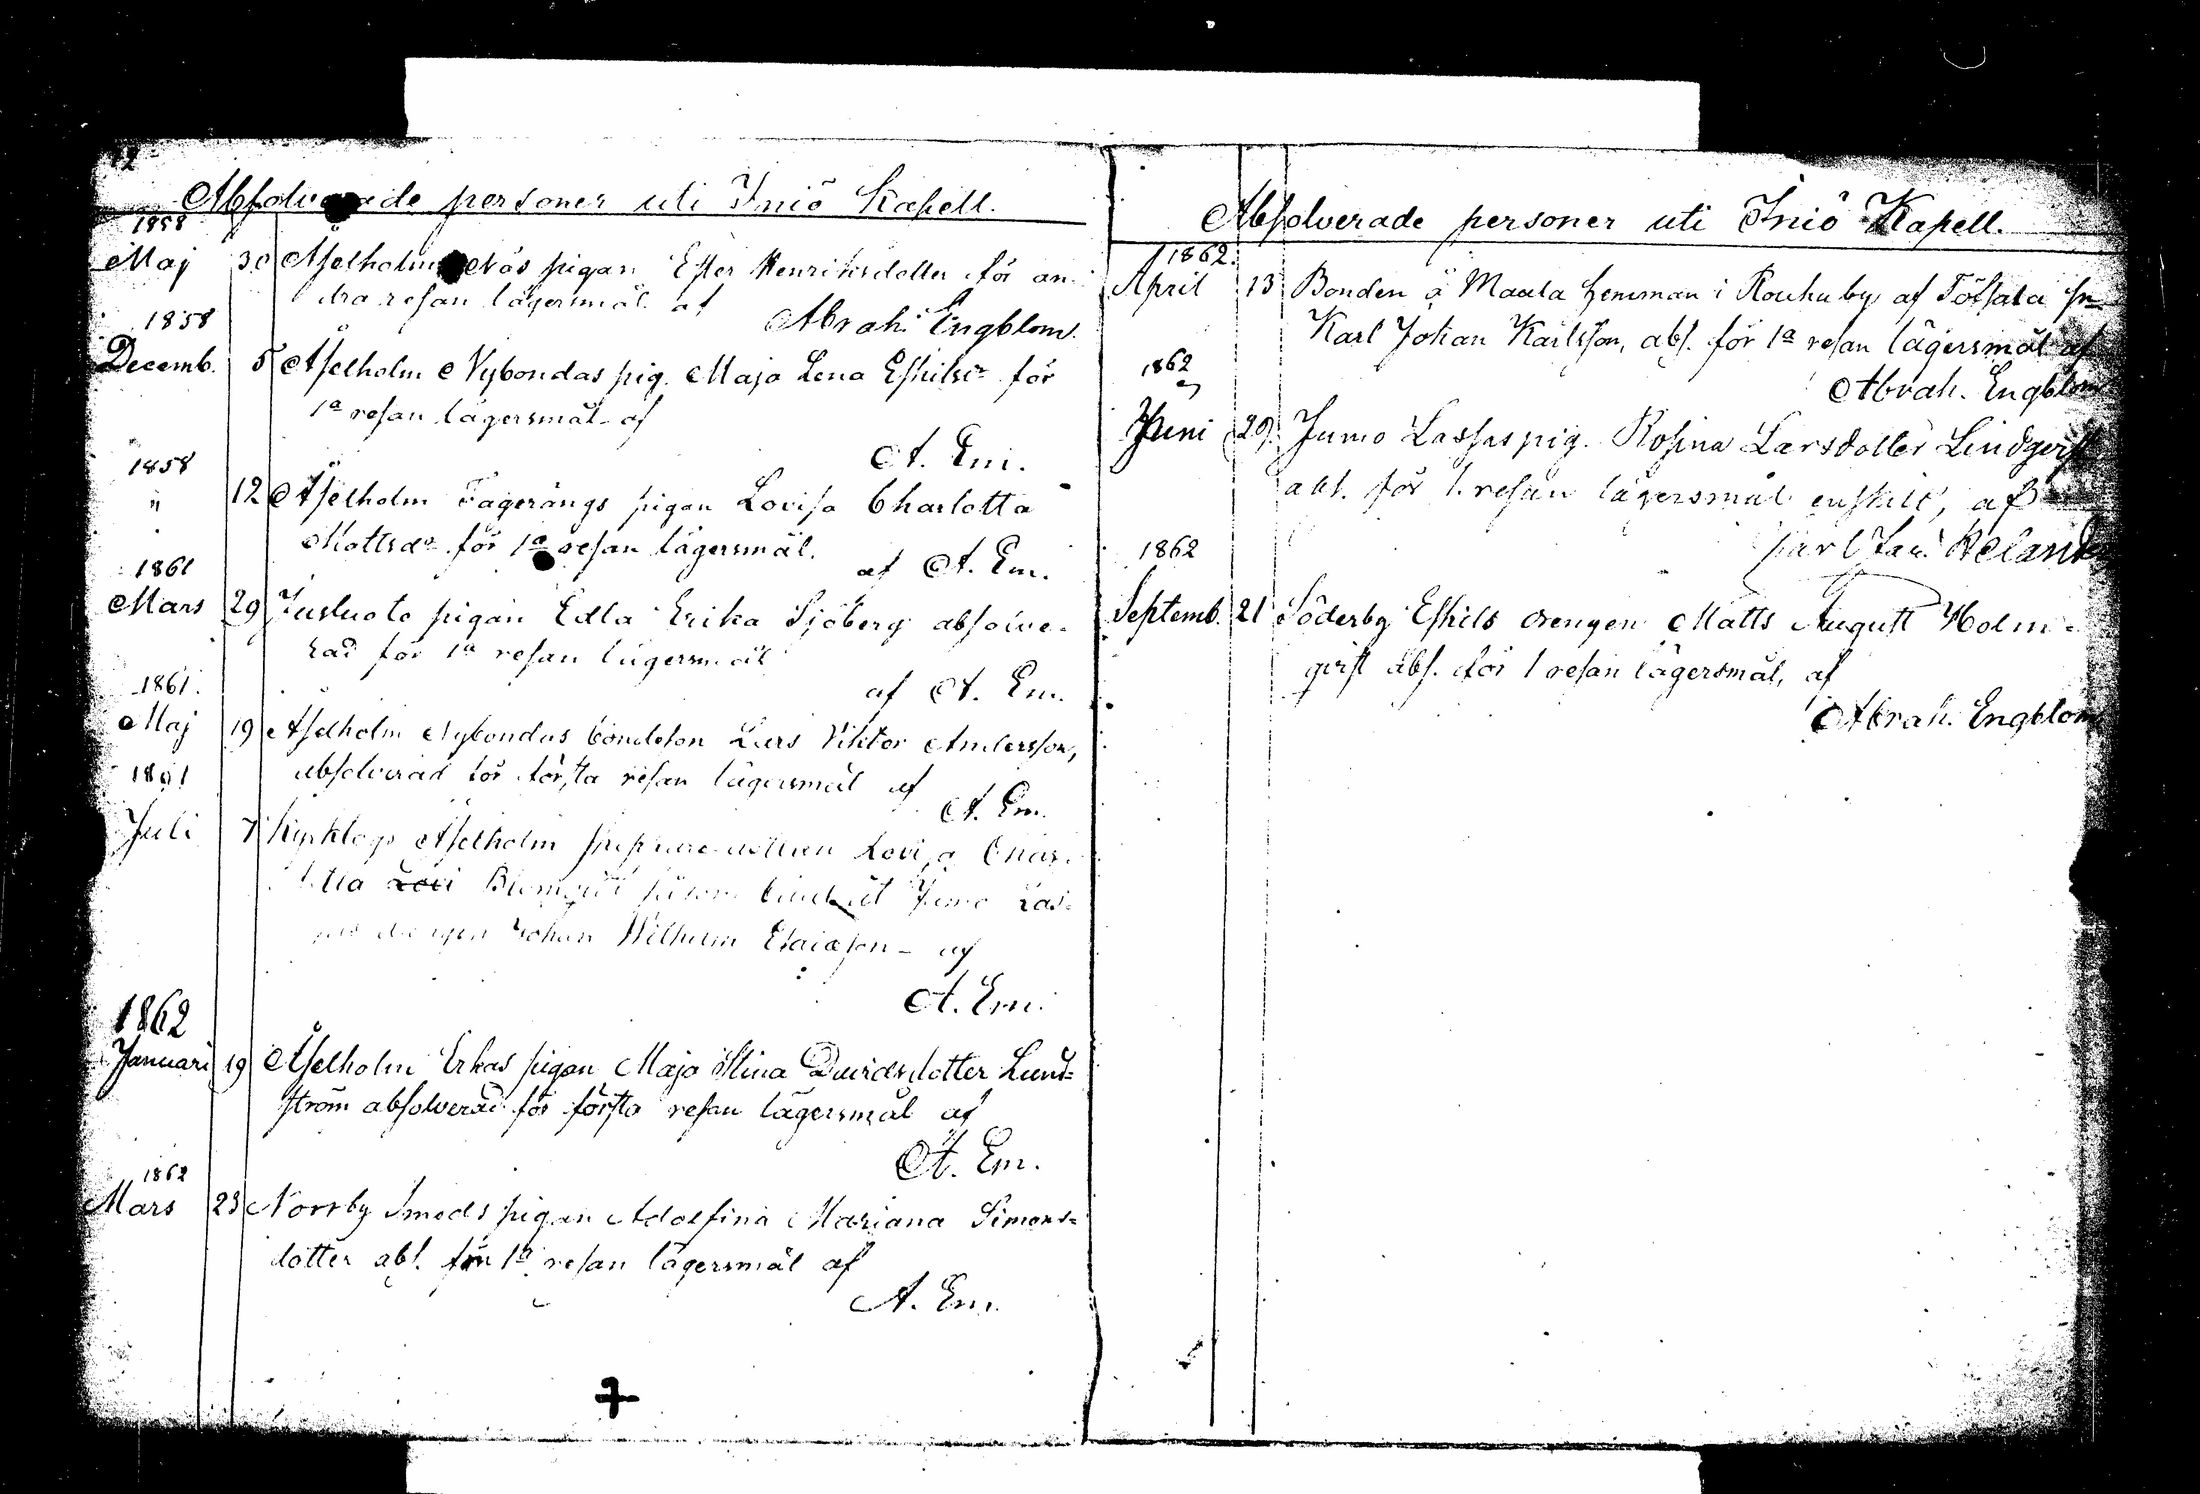 12
Absolverade personer uti Iniö Kapell.
1858
Maj 30 Åselholm Näs pigan Ester Henriksdotter för an-
dra resan lägersmål af
Abrah. Engblom.
1858
Decemb. 5 Åselholm Nybondas pig. Maja Lena Eskilsdr för
1a resan lägersmål af
A. Em.
1858
" 12 Åselholm Fagerängs pigan Lovisa Charlotta
Mattsdr för 1a resan lägersmål.
af A. Em.
1861
Mars 29 pigan Edla Erika Sjöberg absolve-
rad för 1a resan lägersmål
af A. Em.
1861.
Maj 19 Åselholm Nybondas bondeson Lars Viktor Andersson,
absolverad för första resan lägersmål af
A. Em.
1861
Juli 7 Kyrktogs Åselholm Lovisa Char-
lotta Jumo Las-
drengen Johan Wilhelm Esaiasson - af
A. Em.
1862
Januari 19 Åselholm Erkas pigan Maja Stina Davidsdotter Lund=
ström absolverad för första resan lägersmål af
A. Em.
1862
Mars 23 Norrby Smeds pigan Adolfina Mariana Simons=
dotter abs. för 1a resan lägersmål af
A. Em.
Absolverade personer uti Iniö Kapell.
1862.
April 13 Bonden å Maula hemman i Rouhu by af Töfsala
Karl Johan Karlsson, abs. för 1a resan lägersmål af
Abrah. Engblom
1862
Juni 29. Jumo Lassas pig. Rosina Larsdotter Lindqvist
abs. för 1. resan lägersmål enskilt, af
Karl
1862
Septemb. 21 Söderby Eskils drengen Matts August Holm=
qvist abs. för 1 resan lägersmål, af
Abrah. Engblom